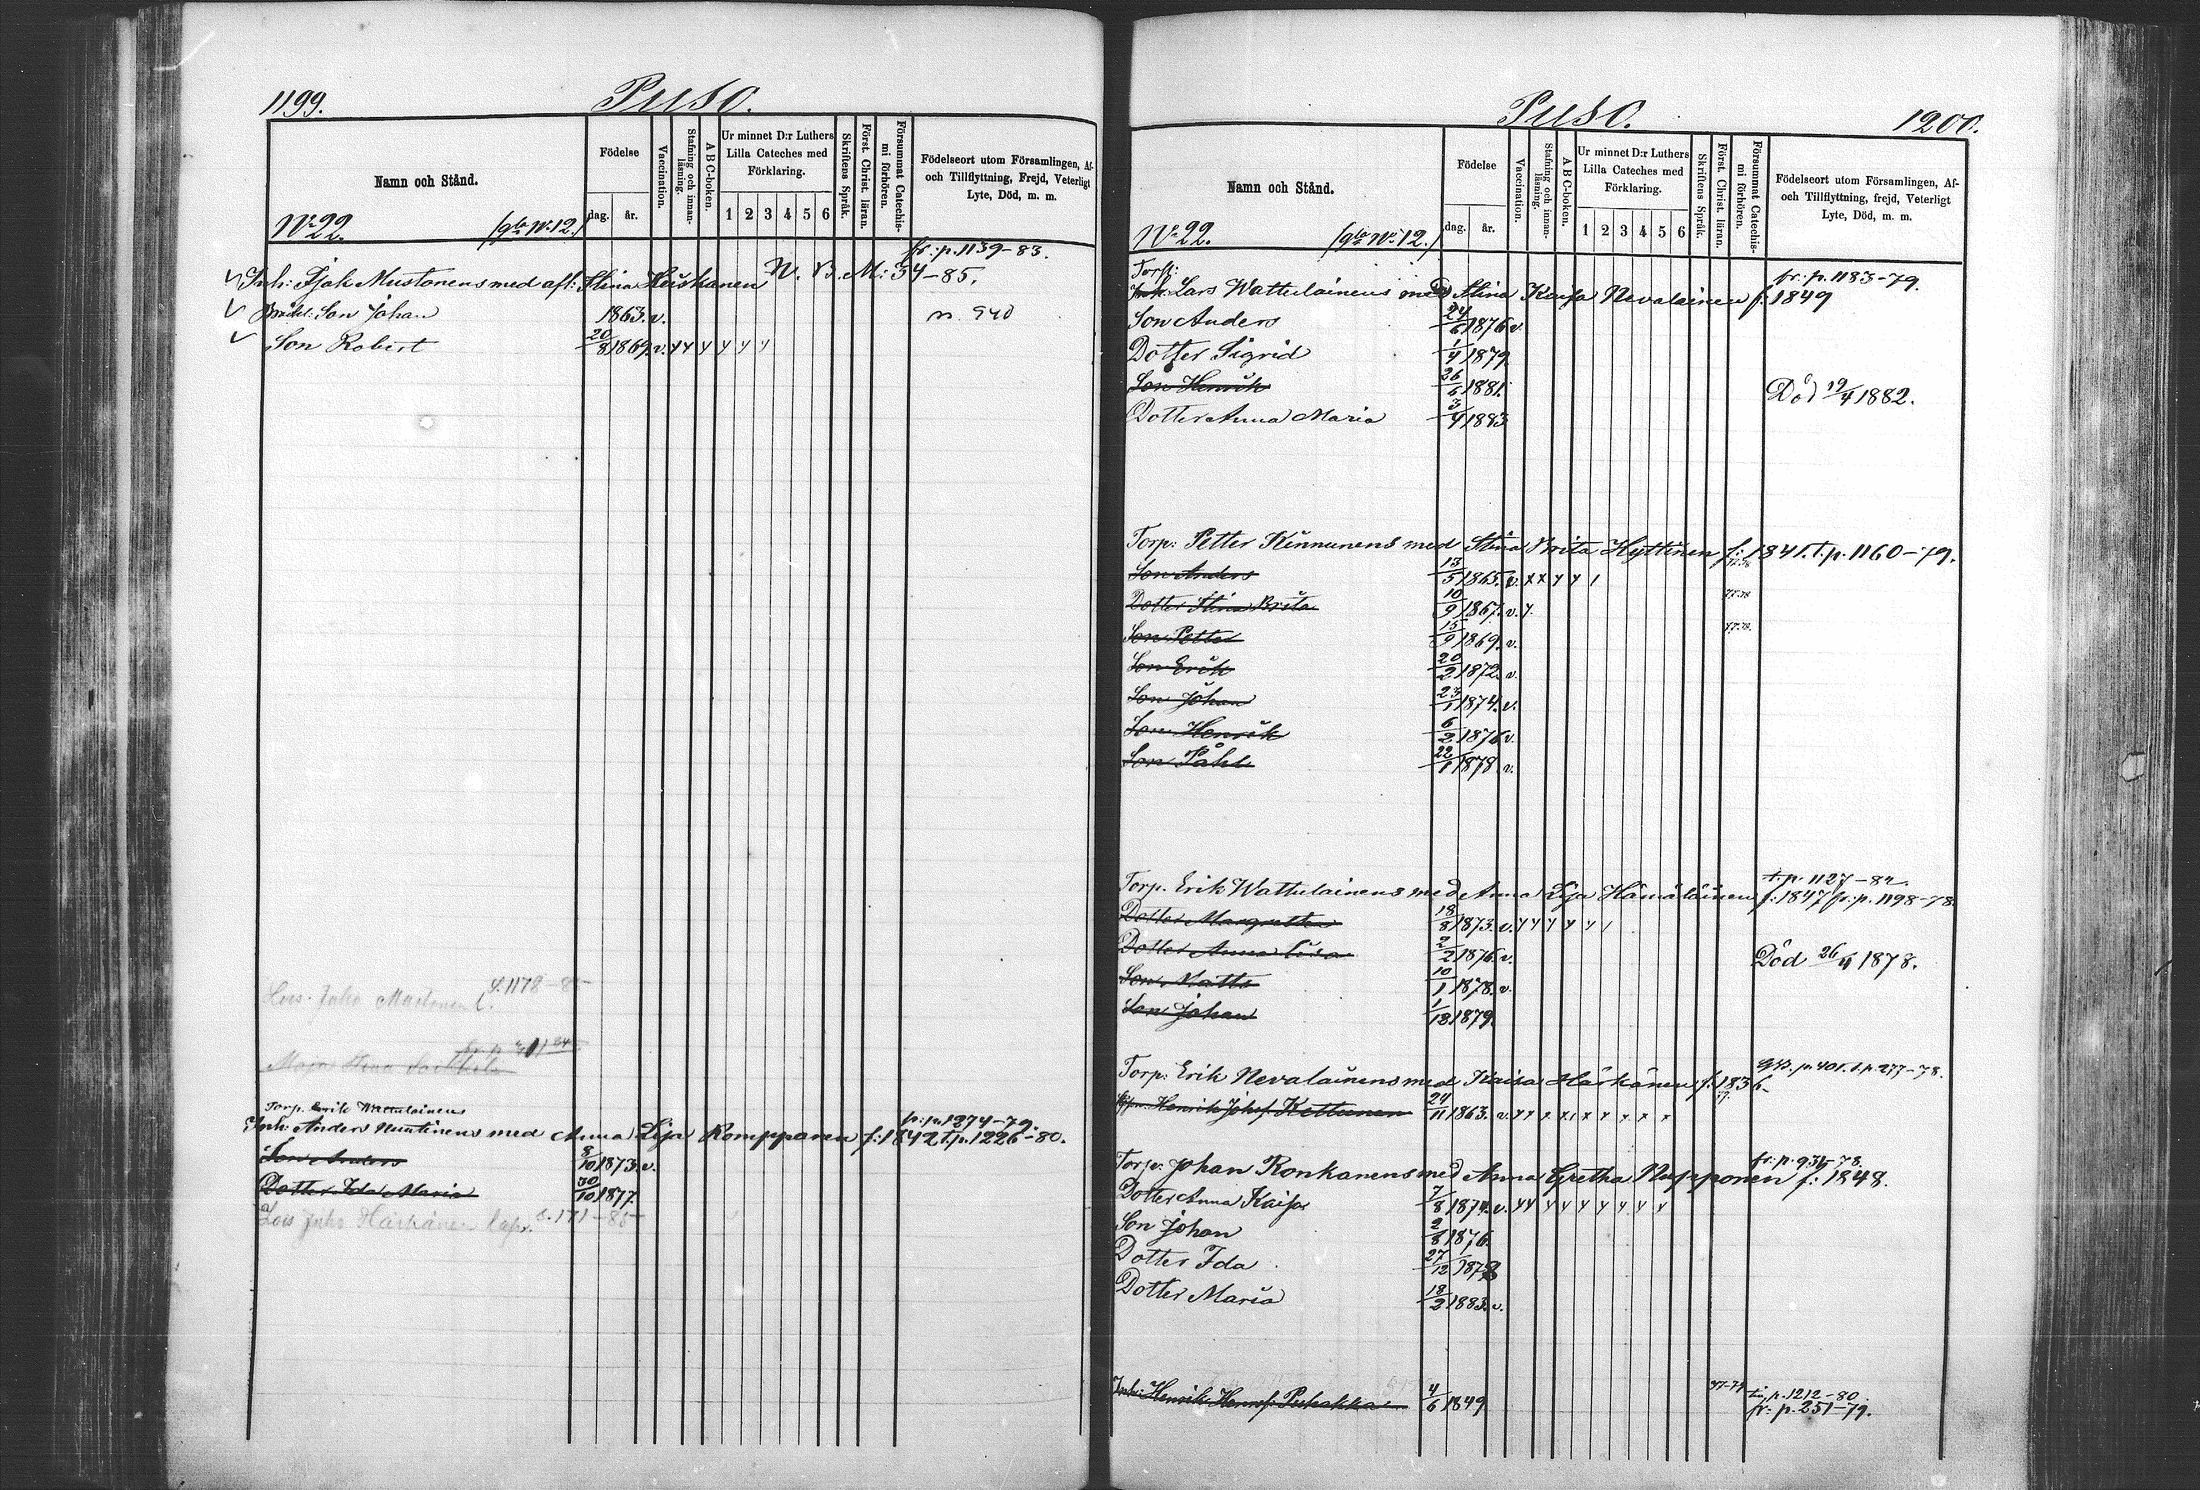 1199.
Puso.
Namn och Stånd.
Födelse
dag.
år.
Vaccination.
Stafning och innan-läsning.
A B C-boken.
Ur minnet D:r Luthers
Lilla Cateches med
Förklaring.
1 2 3 4 5 6
Skriftens Språk.
Först. Christ. läran.
Försummat Catechis-mi förhören.
Födelseort utom Församlingen, Af-
och Tillflyttning, Frejd, Veterligt
Lyte, Död, m. m.
No 22. No 12.
fr: p. 1139-83.
Inh: Mustonens med afl: Stina N. B. M: 34-85.
Son Johan 1863. v. 940
Son Robert 20/8 1869. v. y y y y y y
Juho
Maja Stina
Torp. Erik Wattulainens
fr: p. 1274-79.
Inh: Anders Nuutinens med Anna Lisa Romppanen f: 1842 t. p. 1226-80.
Son Anders 8/10 1873. v.
Dotter Ida Maria 30/10 1877.
Lois Juho Härkänen
Puso.
1200.
Namn och Stånd.
Födelse
dag.
år.
Vaccination.
Stafning och innan-läsning.
A B C-boken.
Ur minnet D:r Luthers
Lilla Cateches med
Förklaring.
1 2 3 4 5 6
Skriftens Språk.
Först. Christ. läran.
Försummat Catechis-mi förhören.
Födelseort utom Församlingen, Af-
och Tillflyttning, frejd, Veterligt
Lyte, Död, m. m.
No 22. No 12.
Torp: fr: p. 1183-79.
Lars Wattulainens med Stina Kaisa Nevalainen f: 1849
Son Anders 24/6 1876 v.
Dotter Sigrid 1/4 1879.
Son Henrik 26/6 1881. Död 19/4 1882.
Dotter Anna Maria 3/4 1883
Torp: Petter Kinnunens med Stina Brita Hyttinen f: 1841. t. p. 1160-79.
Son Anders 13/5 1865. v. x x y y 1
Dotter Stina Brita 10/9 1867. v. y.
Son Petter 15/9 1869. v.
Son Erik 20/2 1872. v.
Son Johan 23/1 1874. v.
Son Henrik 6/2 1876 v.
Son Påhl 22/1 1878 v.
t. p. 1127-82.
Torp. Erik Wattulainens med Anna Lisa Hämäläinen f: 1847 fr: p. 1198-78.
Dotter Margretha 18/8 1873. v. y y y y y 1
Dotter Anna Lisa 2/2 1876. v. Död 26/4 1878.
Son Matts 10/1 1878. v.
Son Johan 1/12 1879.
p. 401. t. p. 277-78.
Torp: Erik Nevalainens med Kaisa Härkänen f: 1836
Henrik Johsf. Kettunen 24/11 1863. v.
fr: p. 934-78.
Torp: Johan Ronkanens med Anna Gretha Nupponen f: 1848.
Dotter Anna Kaisa 7/8 1874. v. y y y y y y y y
Son Johan 2/8 1876.
Dotter Ida 27/12 1878
Dotter Maria 18/2 1883. v.
Inh: Henrik Henrsf. Puhakka 4/6 1849 77-79 p. 1212-80.
fr: p. 251-79.